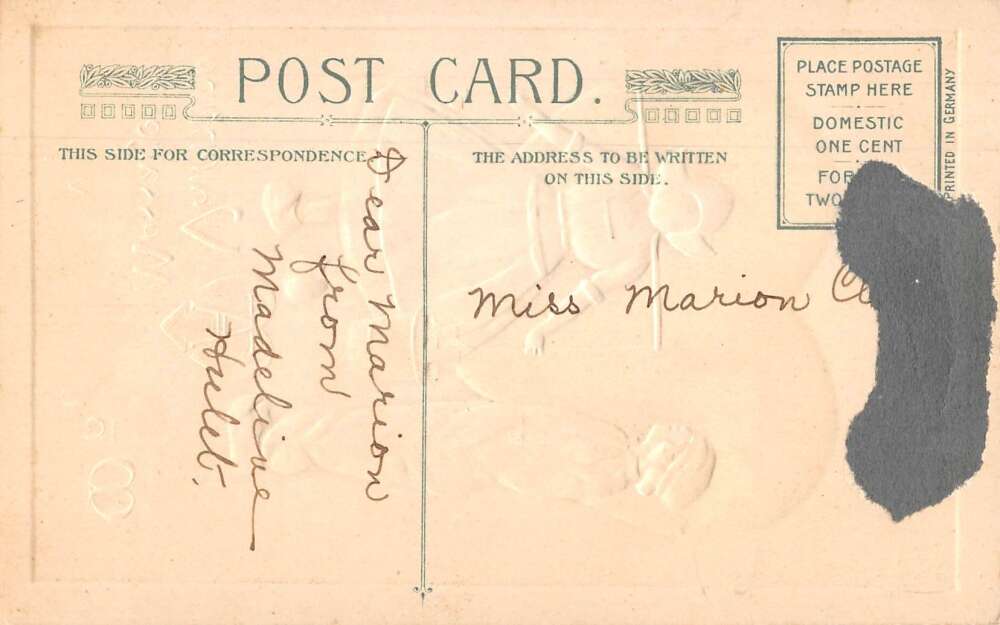 POST CARD.
THIS SIDE FOR CORRESPONDENCE
THE ADDRESS TO BE WRITTEN
ON THIS SIDE.
PLACE POSTAGE
STAMP HERE
DOMESTIC
ONE CENT
FOR
TWO
PRINTED IN GERMANY
Dear Marion
from
Madeline
Hulet.
Miss Marion